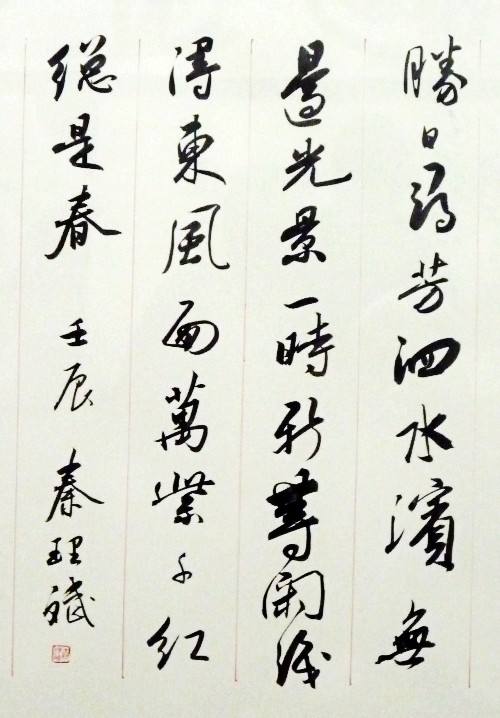 勝日尋芳泗水濱無
邊光景一時新等閑識
得東風面萬紫千紅
總是春 壬辰 秦理斌